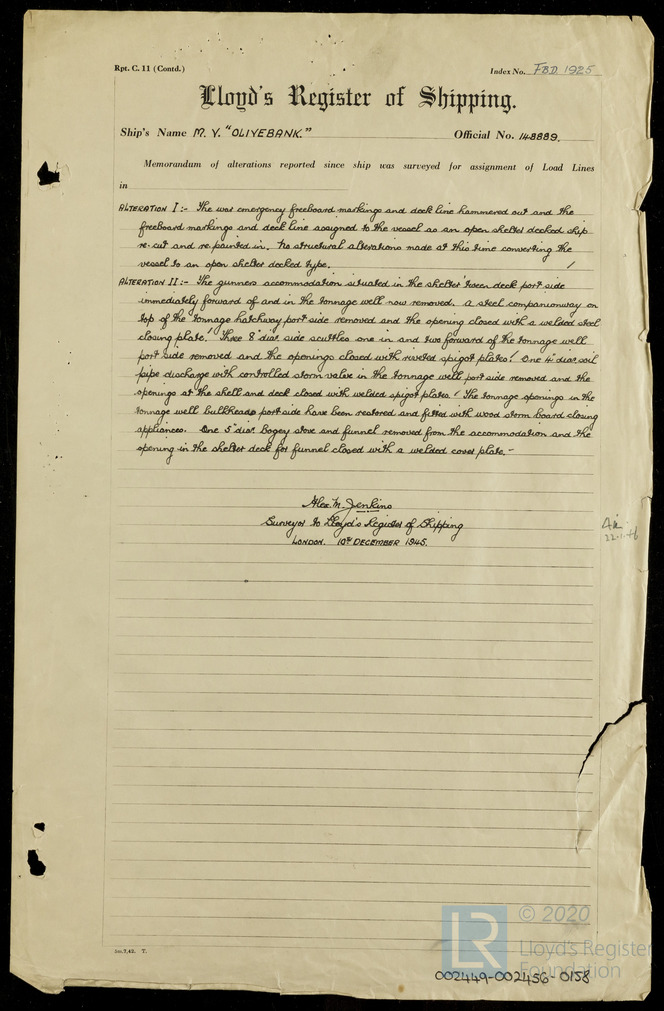 Rpt. C. 11 (Contd.)
Index No. FBD. 1925
Lloyd's Register of Shipping.
Ship's Name M.V. "OLIVEBANK." Official No. 148889.
Memorandum of alterations reported since ship was surveyed for assignment of Load Lines
in
ALTERATION I:- The war emergency freeboard markings and deck line hammered out and the
freeboard markings and deck line assigned to the vessel as an open shelter decked ship
re-cut and re-painted in. No structural alterations made at this time converting the
vessel to an open shelter decked type.
ALTERATION II:- The gunners accommodation situated in the shelter 'tween deck port side
immediately forward of and in the tonnage well now removed. A steel companionway on
top of the tonnage hatchway port side removed and the opening closed with a welded steel
closing plate. Three 8" diar. side scuttles one in and two forward of the tonnage well
port side removed and the openings closed with riveted spigot plates. One 4" diar. soil
pipe discharge with controlled storm valve in the tonnage well port side removed and the
openings at the shell and deck closed with welded spigot plates. The tonnage openings in the
tonnage well bulkheads port side have been restored and fitted with wood storm board closing
appliances. One 5" diar. Bogey stove and funnel removed from the accommodation and the
opening in the shelter deck for funnel closed with a welded cover plate.-
Alex. M. Jenkins
Surveyor to Lloyd's Register of Shipping
LONDON. 10TH DECEMBER 1945.
22.1.46
5m.7.42. T.
LR © 2020
Lloyd's Register
Foundation
002449-002456-0158